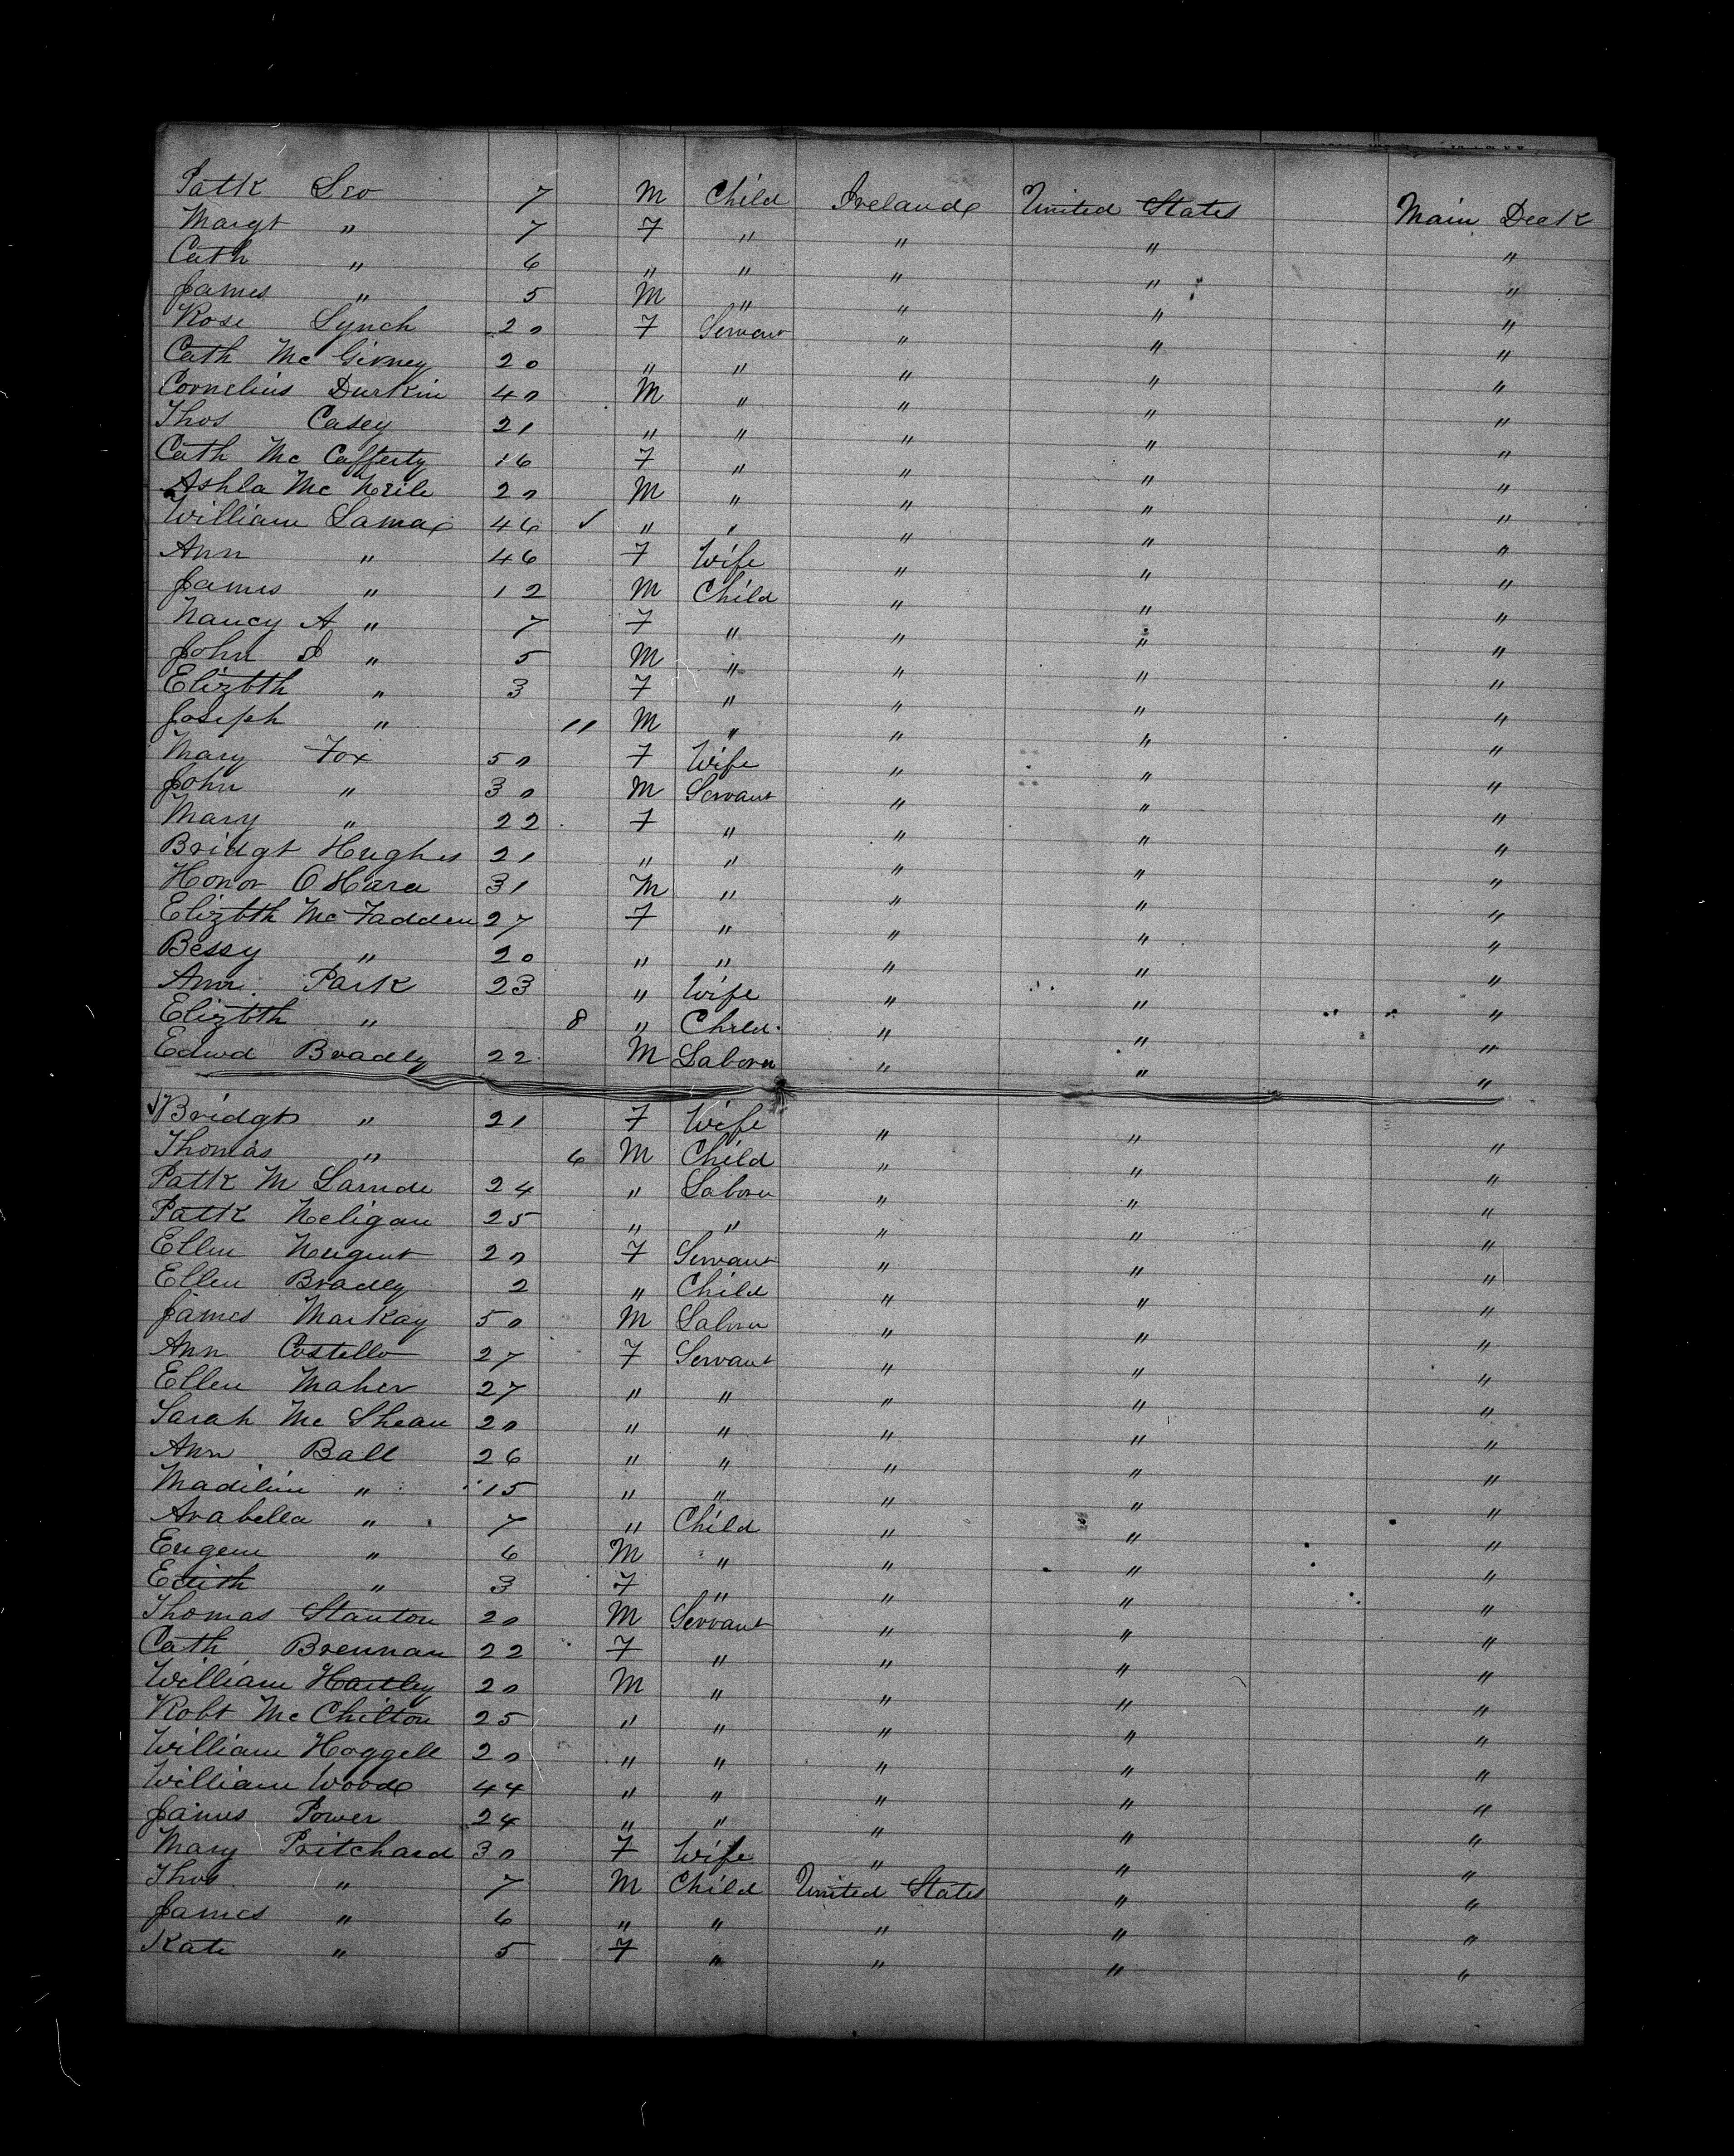 Patk Leo 7 M Child Ireland United States Main Deck
Margt " 7 F " " " "
Cath " 6 " " " " "
James " 5 M " " " "
Rose Lynch 20 F Servant " " "
Cath Mc Girney 20 " " " " "
Cornelius Durkin 40 M " " " "
Thos Casey 21 " " " " "
Cath Mc Cafferty 16 F " " " "
Ashla Mc Neile 20 M " " " "
William Lomax 46 ✓ " " " " "
Ann " 46 F Wife " " "
James " 12 M Child " " "
Nancy A " 7 F " " " "
John " 5 M " " " "
Elizbth " 3 F " " " "
Joseph " 11 M " " " "
Mary Fox 50 F Wife " " "
John " 30 M Servant " " "
Mary " 22 F " " " "
Bridgt Hughes 21 " " " " "
Honor O Hara 31 M " " " "
Elizbth Mc Fadden 27 F " " " "
Bessy " 20 " " " " "
Ann Park 23 " Wife " " "
Elizbth " 8 " Child " " "
Edwd Bradly 22 M Labour " " "
Bridgt " 21 F Wife " " "
Thomas " 6 M Child " " "
Patk M 24 " Labour " " "
Patk Neligan 25 " " " " "
Ellen Nugent 20 F Servant " " "
Ellen Bradly 2 " Child " " "
James Markay 50 M Labour " " "
Ann Costello 27 F Servant " " "
Ellen Maher 27 " " " " "
Sarah Mc Shean 20 " " " " "
Ann Ball 26 " " " " "
Madiline " 15 " " " " "
Arabella " 7 " Child " " "
Eugene " 6 M " " " "
Edith " 3 F " " " "
Thomas Stanton 20 M Servant " " "
Cath Brennan 22 F " " " "
William Hartley 20 M " " " "
Robt Mc Chilton 25 " " " " "
William Hoggell 20 " " " " "
William Wood 44 " " " " "
James Power 24 " " " " "
Mary Pritchard 30 F Wife " " "
Thos " 7 M Child United States " "
James " 6 " " " " "
Kate " 5 F " " " "